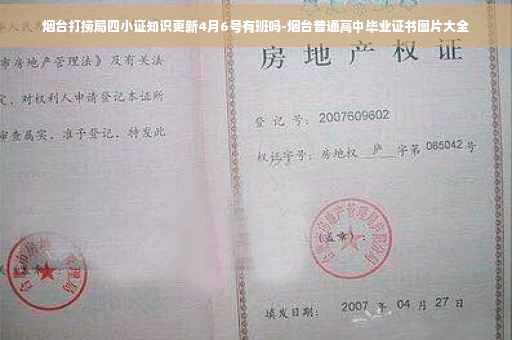 烟台打捞局四小证知识更新4月6号有班吗-烟台普通高中毕业证书图片大全
市房地产管理法》及有关法
定,对权利人申请登记本证所
审查属实,准予登记,特发此
房地产权证
登记号:2007609602
权证字号:房地权庐字第065042号
(盖章):
填发日期:2007年04月27日